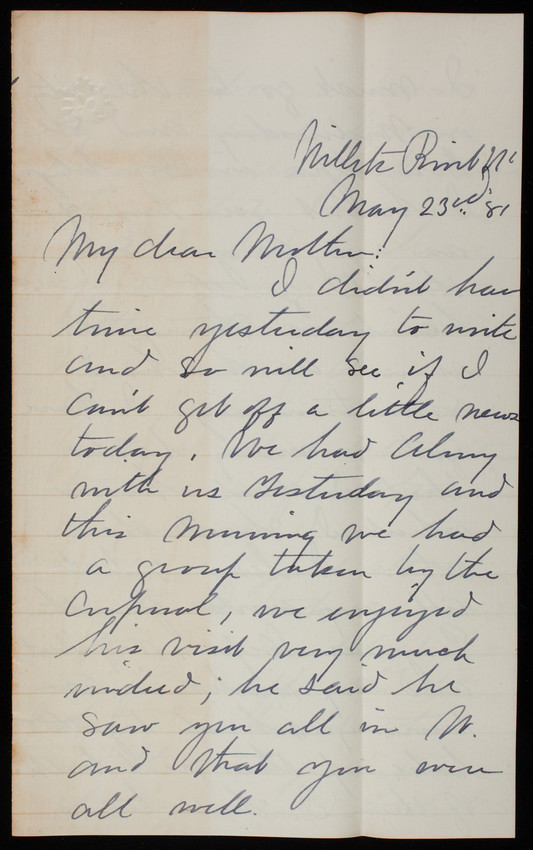 Willets Point NY
May 23rd 81
My dear Mother:
I didn't have
time yesterday to write
and so will see if I
can't get off a little news
today. We had Almy
with us yesterday and
this morning we had
a group taken by the
Corporal, we enjoyed
his visit very much
indeed; he said he
saw you all in W.
and that you were
all well.